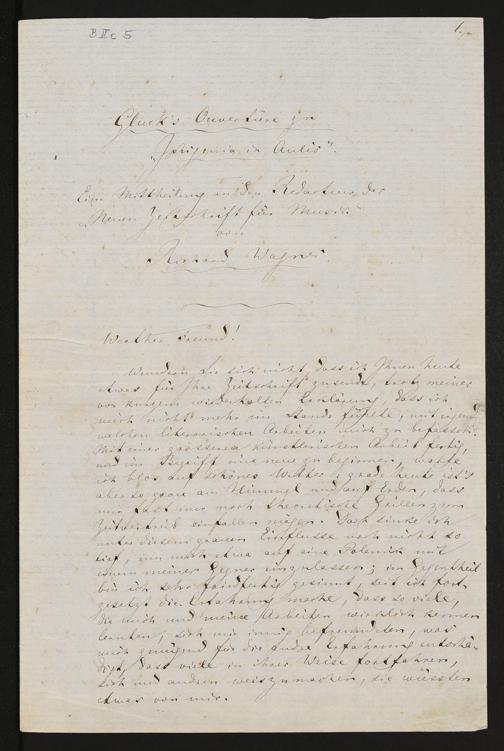 B II c 5
1.
Gluck's Ouvertüre zu
„Iphigenia in Aulis".
Eine Mittheilung an den Redacteur der
„Neuen Zeitschrift für Musik"
von
Richard Wagner.
Werther Freund!
Wundern Sie sich nicht, dass ich Ihnen heute
etwas für Ihre Zeitschrift zusende, trotz meiner
vor kurzem wiederholten Erklärung, dass ich
mich nicht mehr im Stande fühlte, mit irgend
welchen literarischen Arbeiten mich zu befassen.
Mit einer grösseren künstlerischen Arbeit fertig,
und im Begriff eine neue zu beginnen, warte
ich blos auf schönes Wetter; grade heute ist's
aber so grau am Himmel und auf Erden, dass
mir fast nur noch theoretische Grillen zum
Zeitvertreib einfallen mögen. Doch sinke ich
unter diesem grauen Einflusse noch nicht so
tief, um mich etwa auf eine Polemik mit
einem meiner Gegner einzulassen; im Gegentheil
bin ich sehr friedfertig gesinnt, seit ich fort-
gesetzt die Erfahrung mache, dass so viele,
die mich und meine Arbeiten wirklich kennen
lernten, sich mir innig befreundeten, was
mich genügend für die andre Erfahrung entschä-
digt, dass viele in ihrer Weise fortfahren,
sich und andern weiszumachen, sie wüssten
etwas von mir.